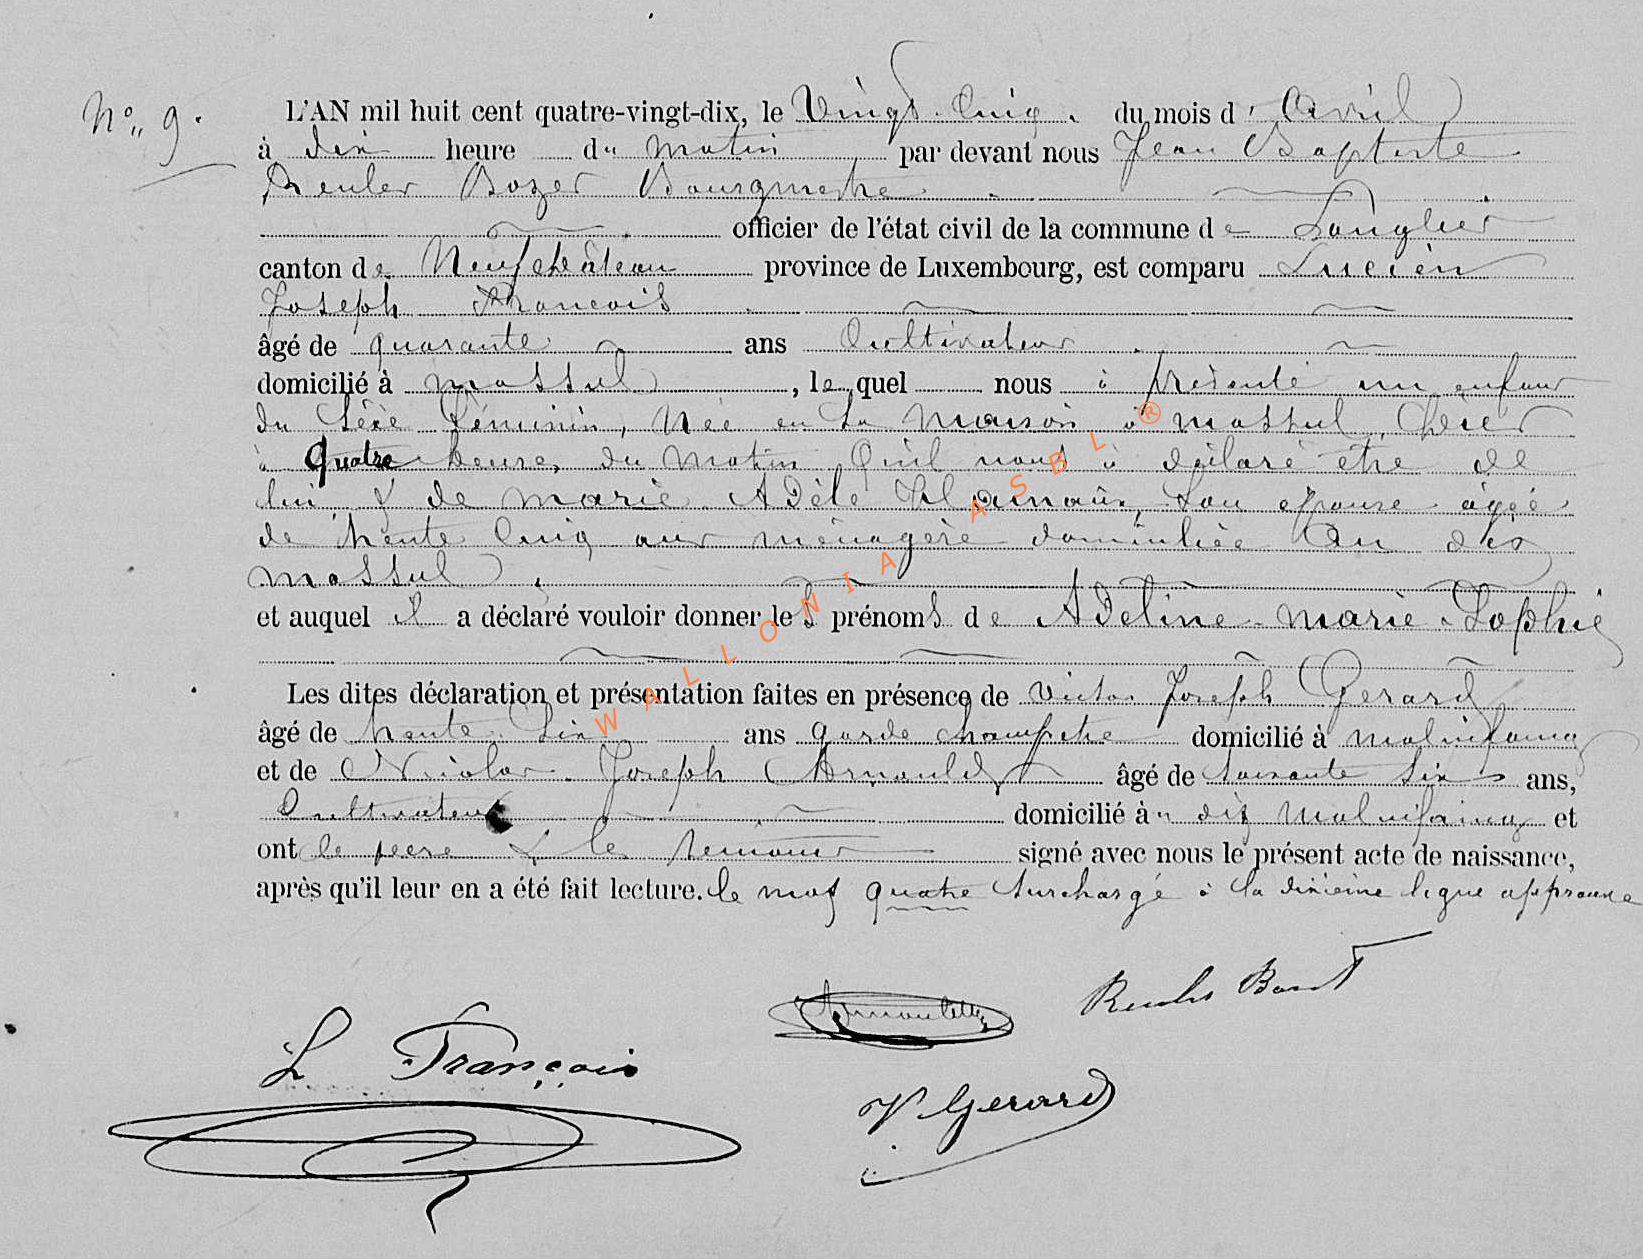 N° 9.
L'AN mil huit cent quatre-vingt-dix, le Vingt Cinq. du mois d' Avril
à dix heure du matin par devant nous Jean Baptiste
Reuler Bourgmestre
officier de l'état civil de la commune de Longlier
canton de Neufchâteau province de Luxembourg, est comparu Lucien
Joseph Francois
âgé de quarante ans Cultivateur
domicilié à massul, le quel nous à présenté un enfant
du Séxe Féminin, Née en Sa maison à massul, hier
à quatre heure, du matin Qu'il nous à déclaré être de
lui & de marie Adèle son epouse agée
de trente Cinq ans ménagère domiciliée au dis
massul
et auquel il a déclaré vouloir donner les prénoms de Adeline marie Sophie
Les dites déclaration et présentation faites en présence de Victor Joseph Gerard
âgé de trente Six ans garde champetre domicilié à molinfaing
et de Nicolas Joseph Arnould âgé de soixante Six ans,
Cultivateur domicilié à dit Molinfaing et
ont le peere & les temoins signé avec nous le présent acte de naissance,
après qu'il leur en a été fait lecture. le mot quatre surchargé à la dixieme ligne approuve
WALLONIA ASBL ®
L François
V Gerard